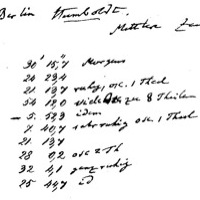 Berlin Humboldt.
30' 15,"7 Morgens
24 23,4
21 13,7 ruhig, osc. 1 Theil
54 12,0 viele zu 8 Theilen
- 5 52,3 idem
7 40,7 sehr ruhig osc 1 Theil
21 13,7
28 0,2 osc 2 Th
32 4,1 ganz ruhig
25 44,4 id